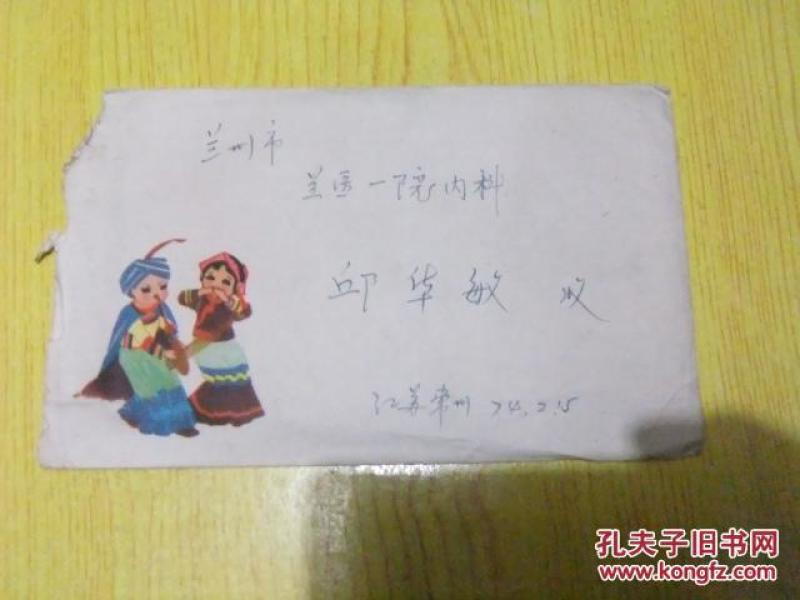 兰州市
兰医一院内科
邱华敏 收
江苏常州 74.2.15
孔夫子旧书网
www.kongfz.com